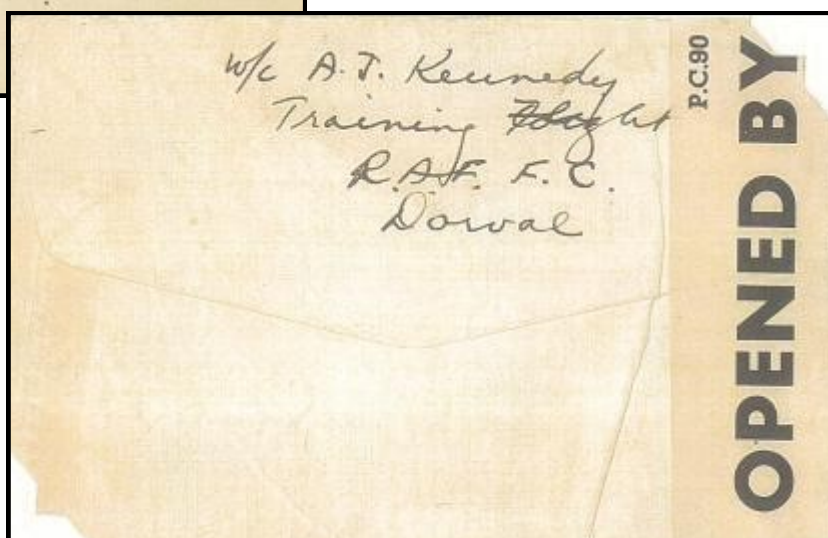 W/c A.J. Kennedy
Training Flight
R.A.F. F.C.
Dorval
P.C.90
OPENED BY